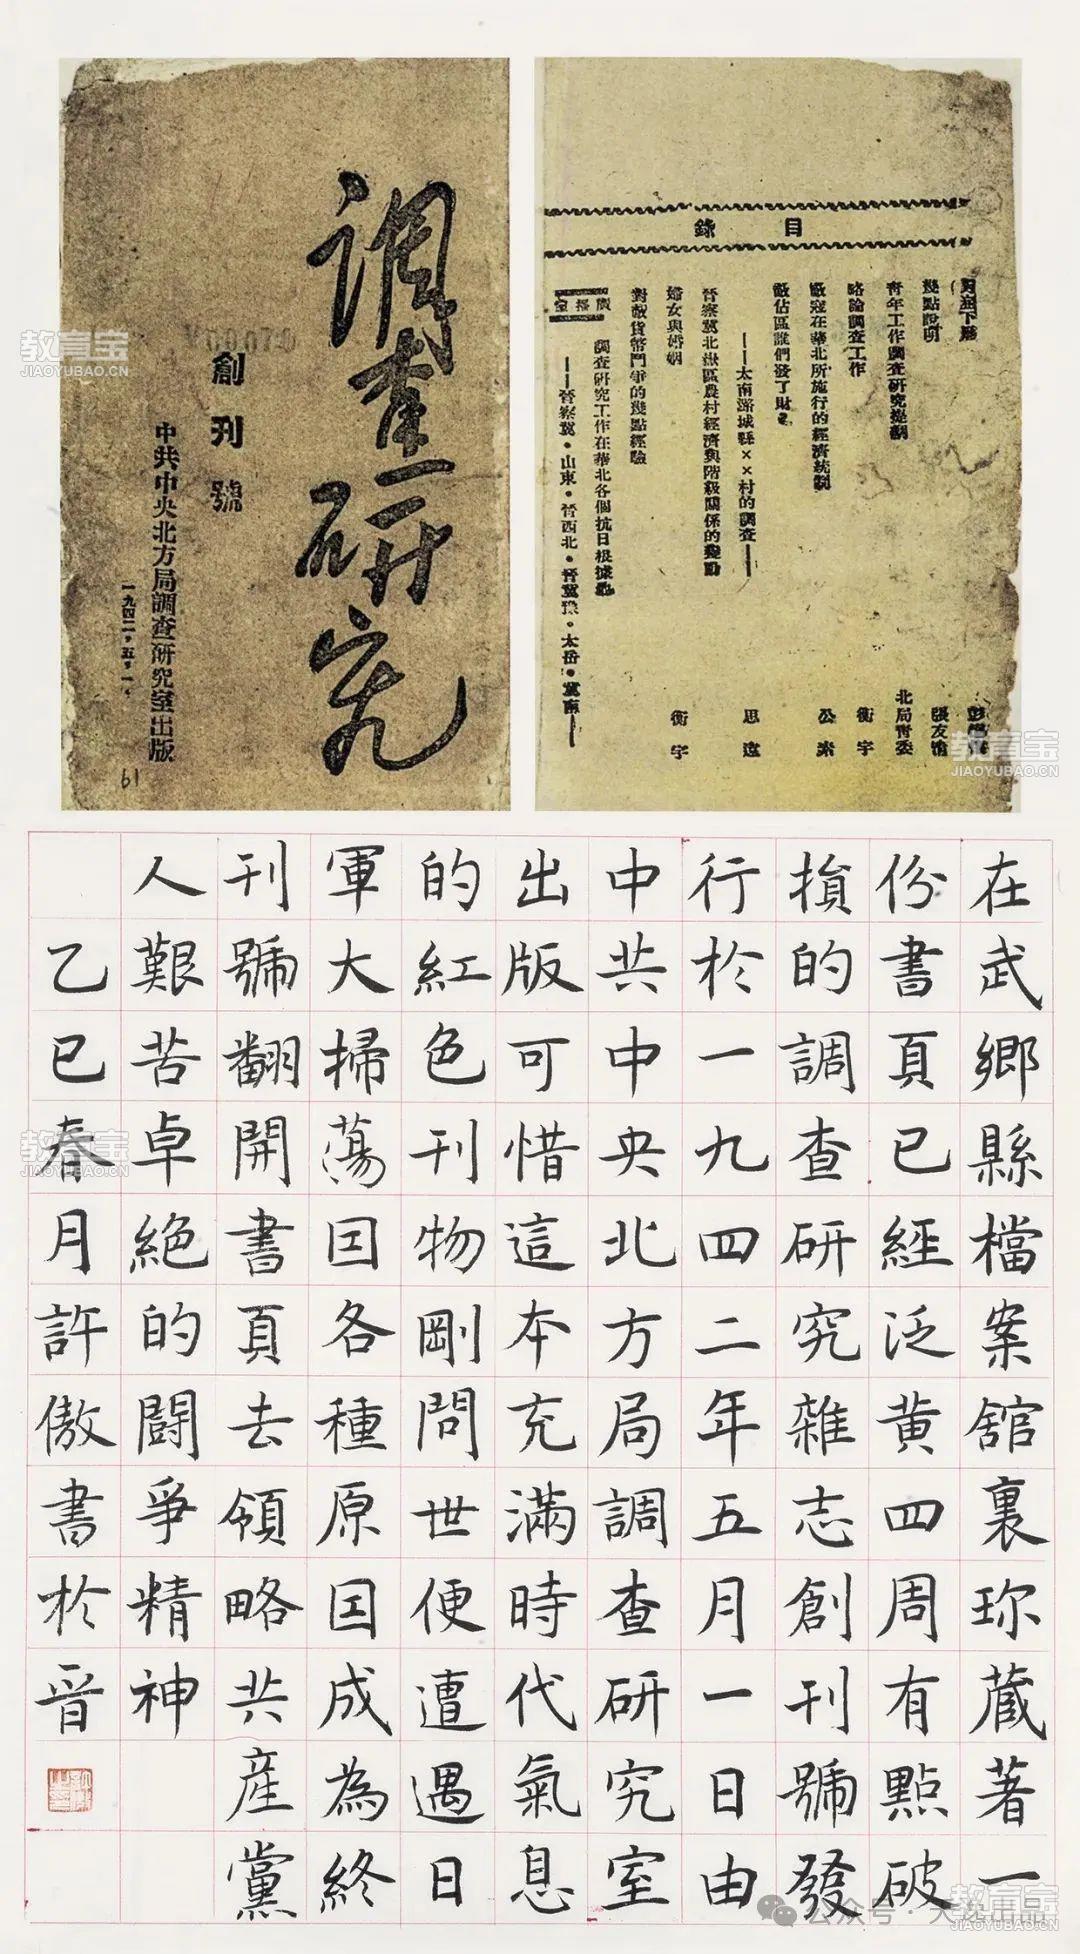 調查研究
創刊號
中共中央北方局調查研究室出版
一九四二,五,一,
61
目錄
幾點說明
青年工作調查研究提綱
略論調查工作
敵寇在華北所施行的經濟統制
敵佔區誰們發了財
——太南潞城縣××村的調查——
晉察冀北嶽區農村經濟與階級關係的變動
婦女與婚姻
對敵貨幣鬥爭的幾點經驗
廣播台
調查研究工作在華北各個抗日根據地
——晉察冀·山東·晉西北·晉冀豫·太岳·冀南——
張友漁
北局青委
衡宇
公素
思遠
衡宇
在武鄉縣檔案舘裏珎蔵著一
份書頁已經泛黄四周有點破
損的調查研究雜志創刊號發
行於一九四二年五月一日由
中共中央北方局調查研究室
出版可惜這本充滿時代氣息
的紅色刊物剛問世便遭遇日
軍大掃蕩囙各種原囙成為終
刊號翻開書頁去領略共産黨
人艱苦卓絕的鬪爭精神
乙巳春月許傲書於晉
教育宝
JIAOYUBAO.CN
教育宝
JIAOYUBAO.CN
教育宝
JIAOYUBAO.CN
教育宝
JIAOYUBAO.CN
公众号